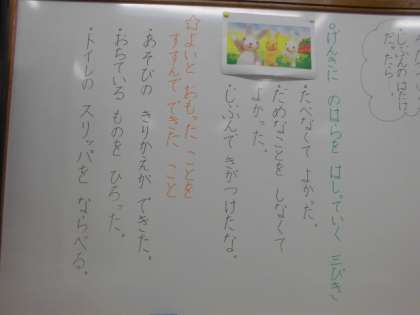 じぶんのはたけ
だったら
◎げんきに のはらを はしっていく 三びき
・たべなくて よかった。
・だめなことを しなくて
よかった。
・じぶんで きがつけたな。
☆よいと おもった ことを
すすんで できた こと
・あそびの きりかえが できた。
・おちている ものを ひろった。
・トイレの スリッパを ならべる。